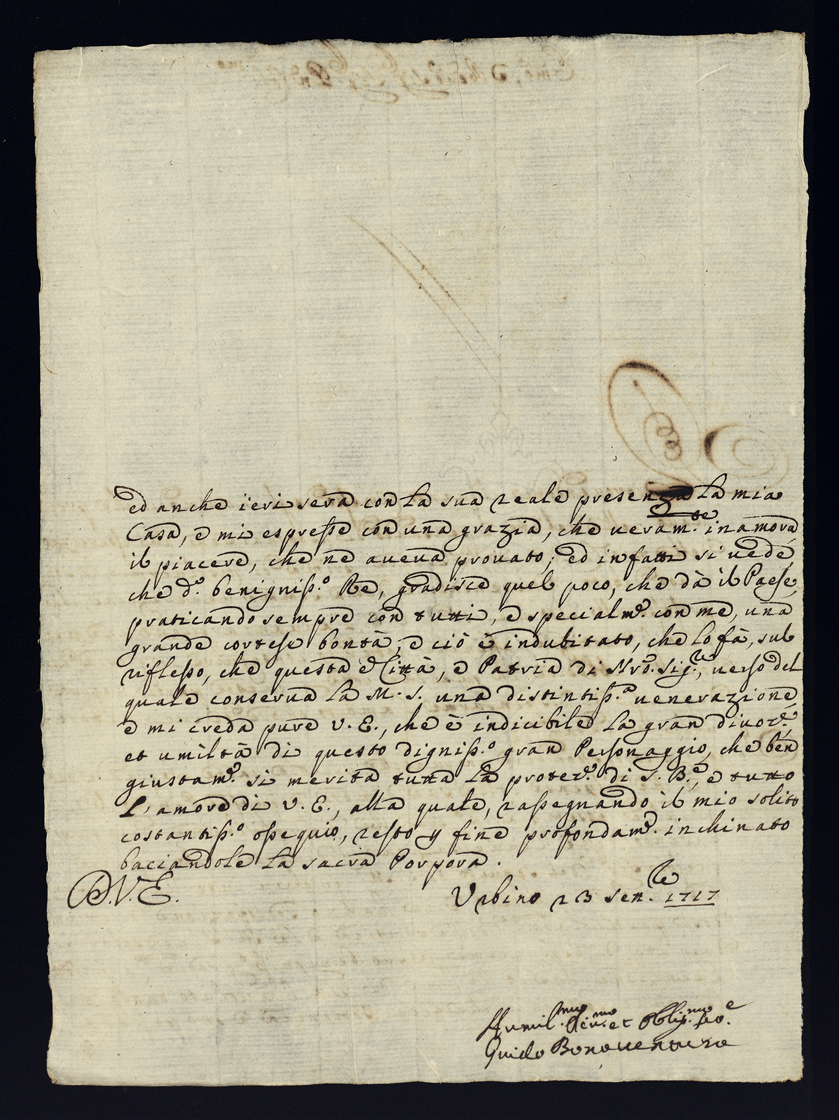 ed anche ieri sera con la sua reale presenza la mia
Casa, e mi espresse con una grazia, che veram.te inamora
il piacere, che ne aveva provato, ed infatti si vede
che d.o benigniss.o Re, gradisce quel poco, che dà il Paese,
praticando sempre con tutti, e specialm.e con me, una
grande cortese bontà, e ciò è indubitato, che lo fà, sul
riflesso, che questa è Città, e Patria di Nro. Sig.re, verso del
quale conserva la M. S. una distintiss.a venerazione
e mi creda pure V. E., che è indicibile la gran divoz.e,
et umiltà di questo digniss.o gran Personaggio, che ben
giustam.e si merita tutta la protez.e di S. B.e, e tutto
l'amore di V. E., alla quale, rassegnando il mio solito
costantiss.o ossequio, resto p fine profondam.e inchinato
baciandole la sacra Porpora.
D. V. E. Urbino 23 1717
Humil.mo Div.mo et Oblig.mo
Guido Bonaventura